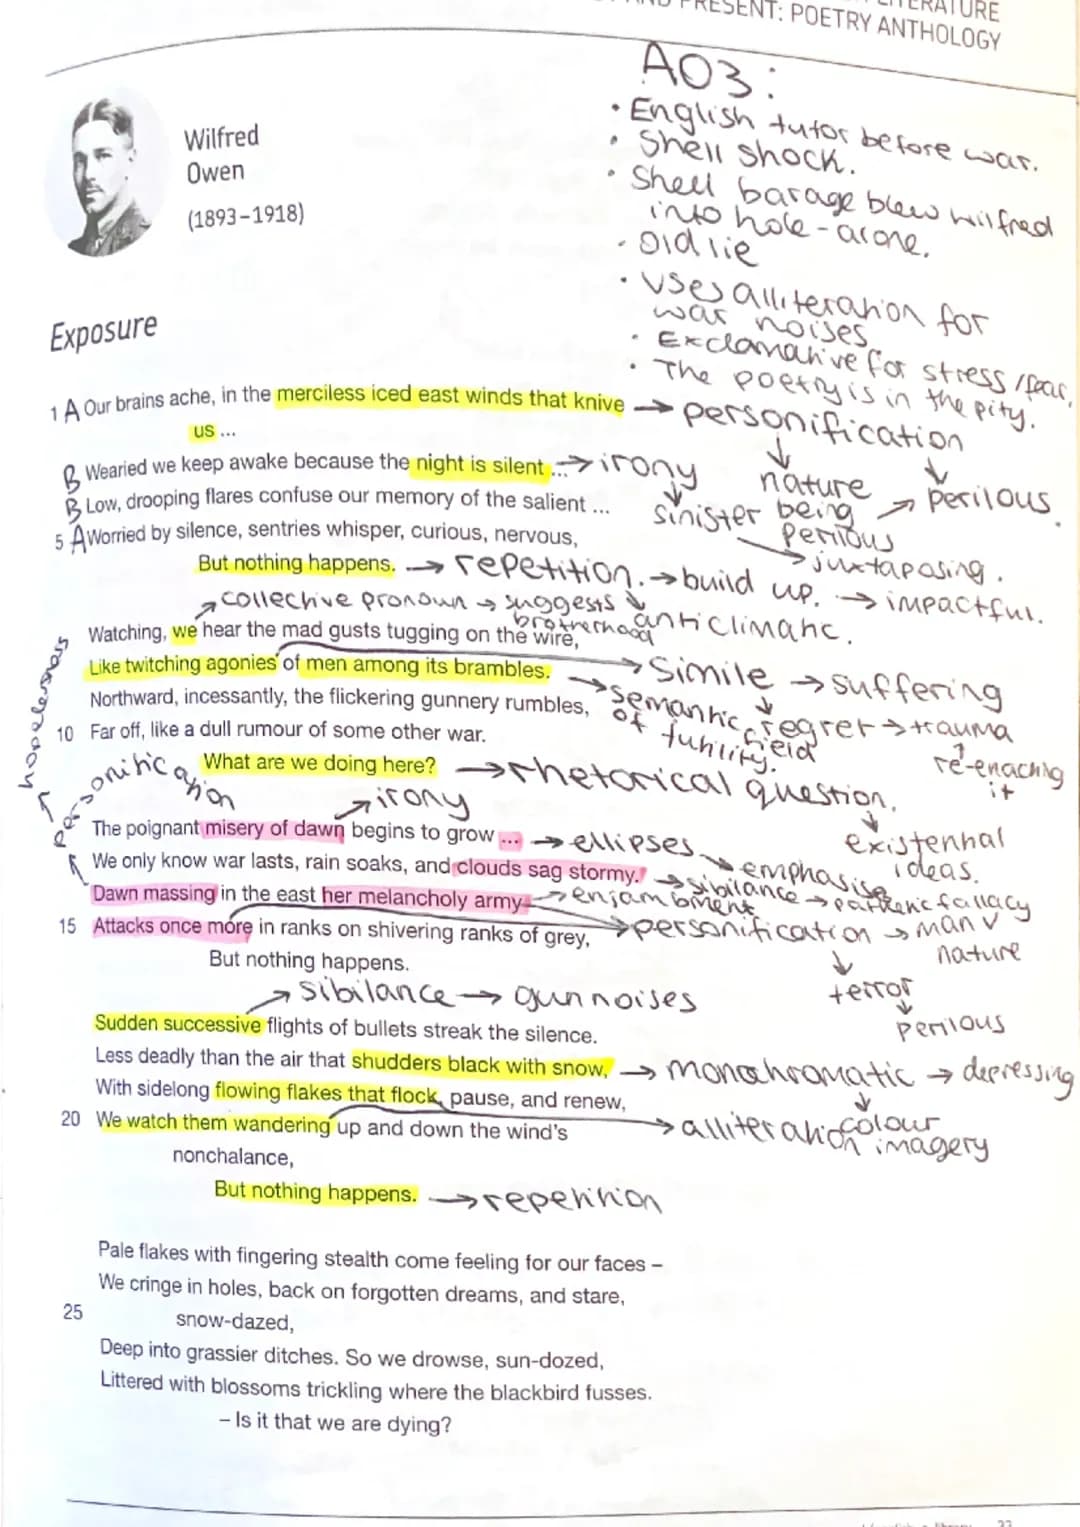 LITERATURE
AND PRESENT: POETRY ANTHOLOGY
Wilfred
Owen
(1893-1918)
AO3:
• English tutor before war.
• Shell shock.
• Shell barage blew wilfred
into hole - alone.
• Old lie
• Uses alliteration for
war noises
• Exclamative for stress / fear.
• The poetry is in the pity.
Exposure
1 A Our brains ache, in the merciless iced east winds that knive
us ...
→ personification
↓ nature being perilous
↓ perilous.
B Wearied we keep awake because the night is silent ...
→ irony
↓ sinister
→ juxtaposing.
B Low, drooping flares confuse our memory of the salient ...
5 A Worried by silence, sentries whisper, curious, nervous,
But nothing happens. → repetition. → build up. → impactful.
↓ anticlimatic.
collective pronoun → suggests brotherhood
Watching, we hear the mad gusts tugging on the wire,
Like twitching agonies of men among its brambles.
→ Simile → suffering
↓ regret → trauma
↑ re-enacting it
→ semantic field of futility.
Northward, incessantly, the flickering gunnery rumbles,
10 Far off, like a dull rumour of some other war.
What are we doing here? → rhetorical question.
↓ existenhal ideas.
hopelessness
personification
irony
The poignant misery of dawn begins to grow ... → ellipses → emphasise
We only know war lasts, rain soaks, and clouds sag stormy.
→ sibilance → pathetic fallacy
Dawn massing in the east her melancholy army → enjambment
→ personification → man v nature
↓ terror
↓ perilous
15 Attacks once more in ranks on shivering ranks of grey,
But nothing happens.
sibilance → gun noises
Sudden successive flights of bullets streak the silence.
Less deadly than the air that shudders black with snow,
→ monochromatic → depressing
↓ colour imagery
With sidelong flowing flakes that flock, pause, and renew,
→ alliteration
20 We watch them wandering up and down the wind's
nonchalance,
But nothing happens. → repetition
Pale flakes with fingering stealth come feeling for our faces –
We cringe in holes, back on forgotten dreams, and stare,
25 snow-dazed,
Deep into grassier ditches. So we drowse, sun-dozed,
Littered with blossoms trickling where the blackbird fusses.
– Is it that we are dying?